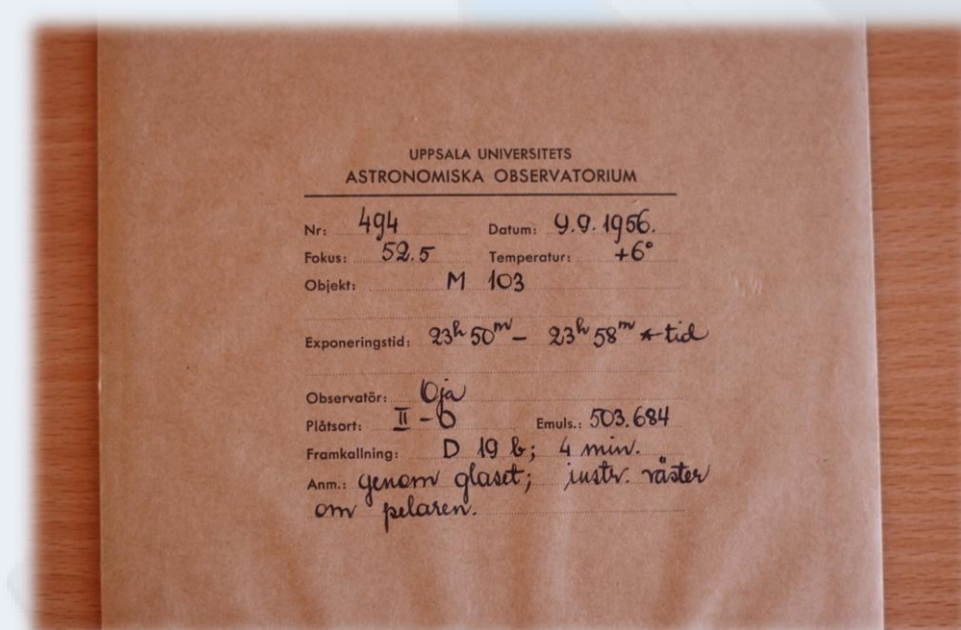 UPPSALA UNIVERSITETS
ASTRONOMISKA OBSERVATORIUM
Nr: 494 Datum: 9.9.1956.
Fokus: 52.5 Temperatur: +6°
Objekt: M 103
Exponeringstid: 23h 50m – 23h 58m *tid
Observatör: Oja
Plåtsort: II - O Emuls.: 503.684
Framkallning: D 19 b; 4 min.
Anm.: genom glaset; instr. väster
om pelaren.